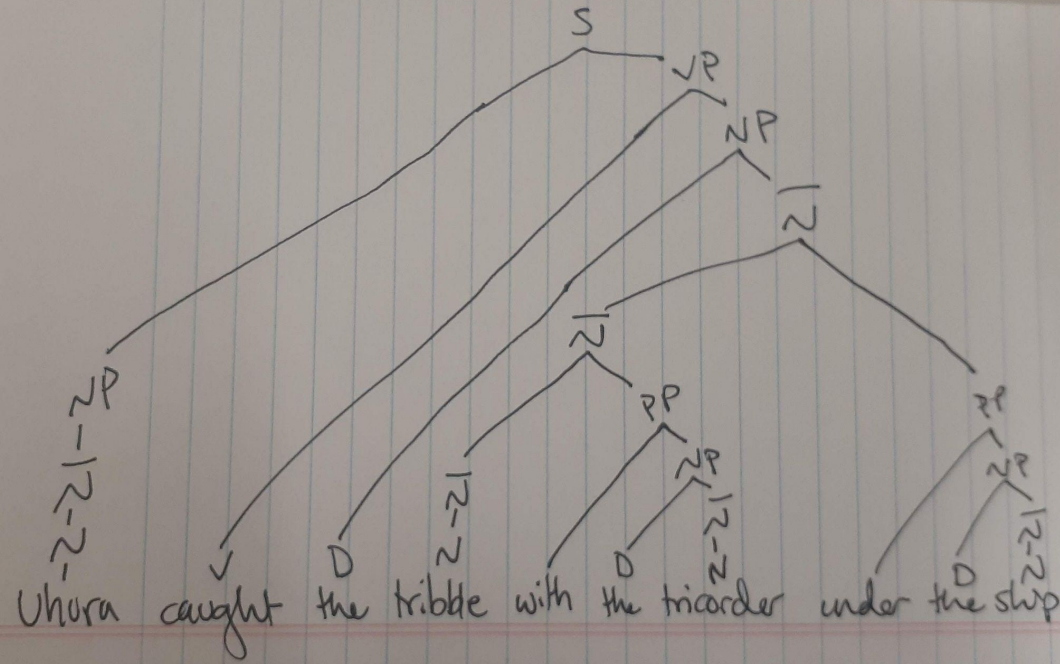 S
VP
NP
N̄
N̄
NP PP PP
N̄ N̄ NP NP
N V D N D N̄ N D N̄ N
Uhura caught the tribble with the tricorder under the ship